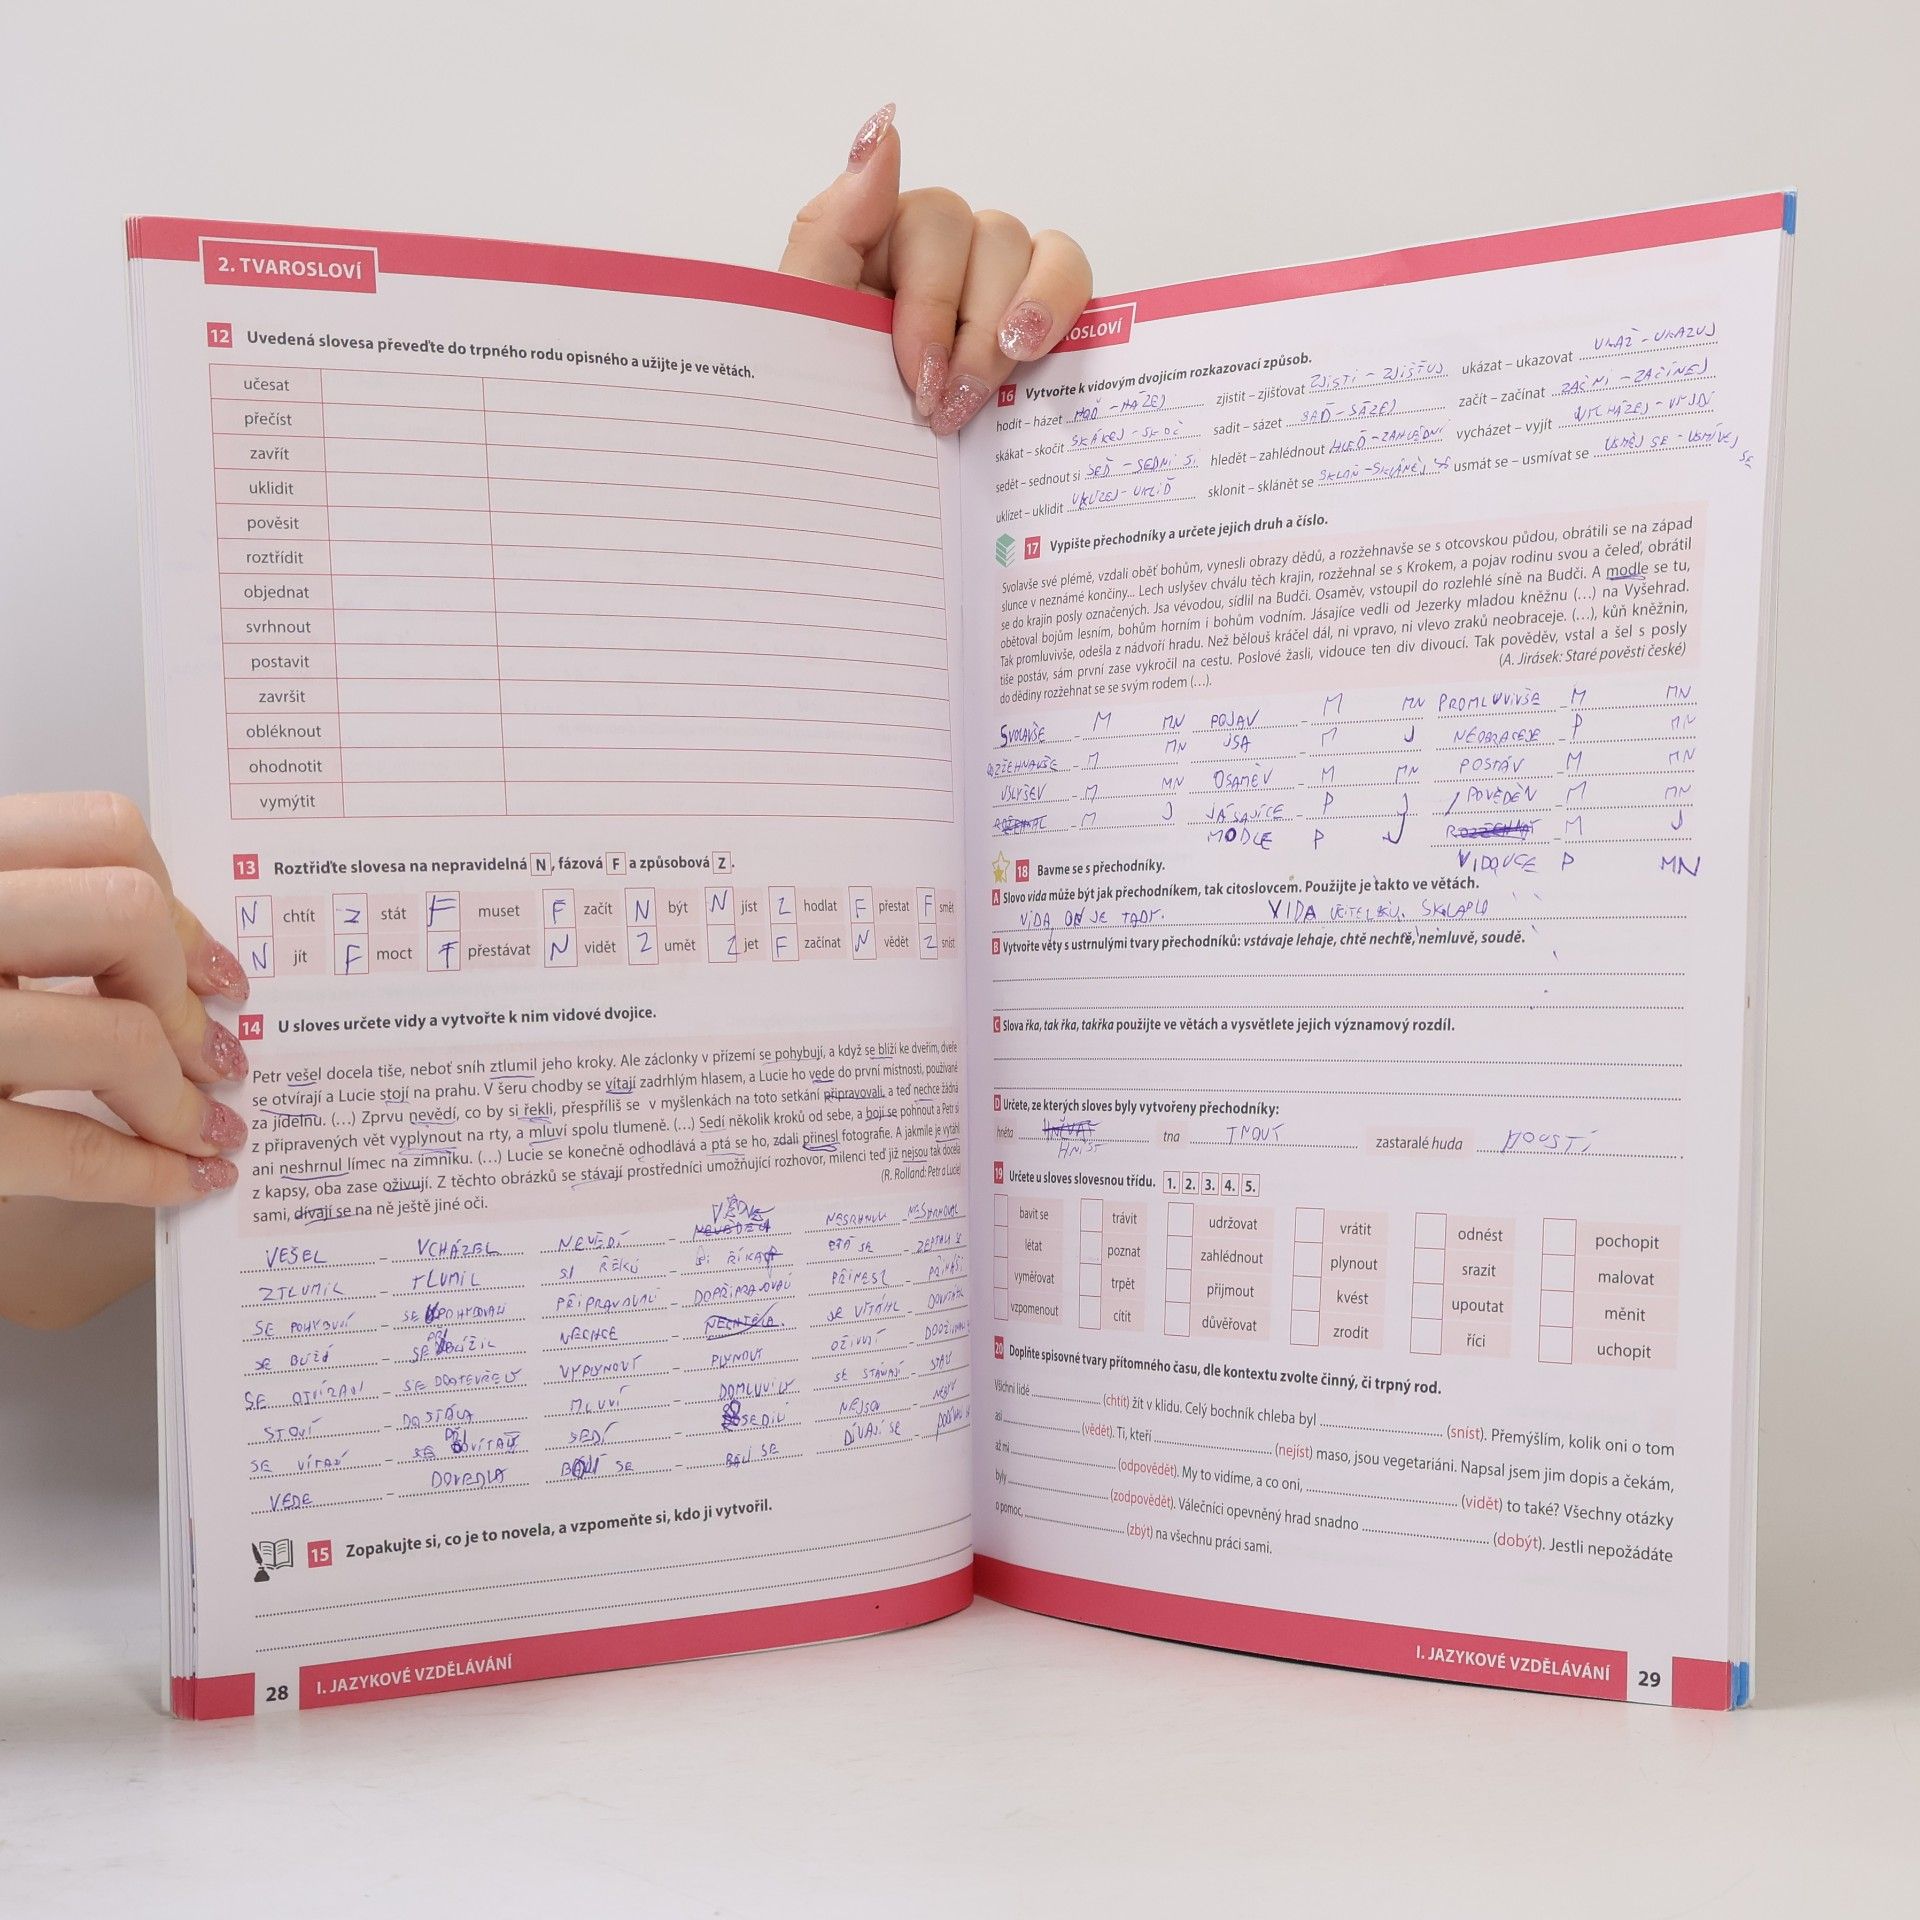 2. TVAROSLOVÍ
12 Uvedená slovesa převeďte do trpného rodu opisného a užijte je ve větách.
učesat
přečíst
zavřít
uklidit
pověsit
roztřídit
objednat
svrhnout
postavit
završit
obléknout
ohodnotit
vymýtit
13 Roztřiďte slovesa na nepravidelná N, fázová F a způsobová Z.
N chtít Z stát F muset F začít N být N jíst Z hodlat F přestat F smět
N jít F moct F přestávat N vidět Z umět Z jet F začínat N vědět Z sníst
14 U sloves určete vidy a vytvořte k nim vidové dvojice.
Petr vešel docela tiše, neboť sníh ztlumil jeho kroky. Ale záclonky v přízemí se pohybují, a když se blíží ke dveřím, dveře
se otvírají a Lucie stojí na prahu. V šeru chodby se vítají zadrhlým hlasem, a Lucie ho vede do první místnosti, používané
za jídelnu. (…) Zprvu nevědí, co by si řekli, přespříliš se v myšlenkách na toto setkání připravovali, a teď nechce žádná
z připravených vět vyplynout na rty, a mluví spolu tlumeně. (…) Sedí několik kroků od sebe, a bojí se pohnout a Petr si
ani neshrnul límec na zimníku. (…) Lucie se konečně odhodlává a ptá se ho, zdali přinesl fotografie. A jakmile je vytáhl
z kapsy, oba zase oživují. Z těchto obrázků se stávají prostředníci umožňující rozhovor, milenci teď již nejsou tak docela
sami, dívají se na ně ještě jiné oči.
(R. Rolland: Petr a Lucie)
VEŠEL – VCHÁZEL NEVĚDÍ –
ZTLUMIL – TLUMIL SI ŘEKLI –
SE POHYBUJÍ – PŘIPRAVOVALI – PŘINESL –
SE BLÍŽÍ – NECHCE – SE VÝTÁHL –
SE OTVÍRAJÍ – VYPLYNOUT – PLYNOUT OŽIVUJÍ –
STOJÍ – DOSTÁLA MLUVÍ – DOMLUVILI SE STÁVAJÍ –
SE VÍTAJÍ – SEDÍ – SEDILI NEJSOU –
VEDE – DOVEDLA SE – DÍVAJÍ SE –
15 Zopakujte si, co je to novela, a vzpomeňte si, kdo ji vytvořil.
28 I. JAZYKOVÉ VZDĚLÁVÁNÍ
OSLOVÍ
16 Vytvořte k vidovým dvojicím rozkazovací způsob.
hodit – házet HOĎ – HÁZEJ zjistit – zjišťovat ZJISTI – ZJIŠŤUJ ukázat – ukazovat UKAŽ – UKAZUJ
skákat – skočit SKÁKEJ – SKOČ sadit – sázet SAĎ – SÁZEJ začít – začínat ZAČNI – ZAČÍNEJ
sedět – sednout si SEĎ – SEDNI SI hledět – zahlédnout HLEĎ – ZAHLÉDNI vycházet – vyjít VYCHÁZEJ – VYJDI
uklízet – uklidit UKLÍZEJ – UKLIĎ sklonit – sklánět se SKLOŇ – SKLÁNĚJ SE usmát se – usmívat se USMĚJ SE – USMÍVEJ SE
17 Vypište přechodníky a určete jejich druh a číslo.
Svolavše své plémě, vzdali oběť bohům, vynesli obrazy dědů, a rozžehnavše se s otcovskou půdou, obrátili se na západ
slunce v neznámé končiny... Lech uslyšev chválu těch krajin, rozžehnal se s Krokem, a pojav rodinu svou a čeleď, obrátil
se do krajin posly označených. Jsa vévodou, sídlil na Budči. Osaměv, vstoupil do rozlehlé síně na Budči. A modle se tu,
obětoval bojům lesním, bohům horním i bohům vodním. Jásajíce vedli od Jezerky mladou kněžnu (…) na Vyšehrad.
Tak promluvivše, odešla z nádvoří hradu. Než bělouš kráčel dál, ni vpravo, ni vlevo zraků neobraceje. (…), kůň kněžnin,
tiše postáv, sám první zase vykročil na cestu. Poslové žasli, vidouce ten div divoucí. Tak pověděv, vstal a šel s posly
do dědiny rozžehnat se se svým rodem (…).
(A. Jirásek: Staré pověsti české)
SVOLAVŠE – M MN POJAV – M MN PROMLUVIVŠE – M MN
ROZŽEHNAVŠE – M MN JSA – M J NEOBRACEJE – P MN
USLYŠEV – M MN OSAMĚV – M MN POSTÁV – M MN
– M J JÁSAJÍCE – P J POVĚDĚV – M MN
MODLE P J – M J
VIDOUCE P MN
18 Bavme se s přechodníky.
A Slovo vida může být jak přechodníkem, tak citoslovcem. Použijte je takto ve větách.
VIDA, ON JE TADY. VIDA UČITELKU, SKLAPLO
B Vytvořte věty s ustrnulými tvary přechodníků: vstávaje lehaje, chtě nechtě, nemluvě, soudě.
C Slova řka, tak řka, takřka použijte ve větách a vysvětlete jejich významový rozdíl.
D Určete, ze kterých sloves byly vytvořeny přechodníky:
hněta HNÍST tna TNOUT zastaralé huda HOUSTI .
19 Určete u sloves slovesnou třídu. 1. 2. 3. 4. 5.
bavit se trávit udržovat vrátit odnést pochopit
létat poznat zahlédnout plynout srazit malovat
vyměřovat trpět přijmout kvést upoutat měnit
vzpomenout cítit důvěřovat zrodit říci uchopit
20 Doplňte spisovné tvary přítomného času, dle kontextu zvolte činný, či trpný rod.
Všichni lidé (chtít) žít v klidu. Celý bochník chleba byl (sníst). Přemýšlím, kolik oni o tom
asi (vědět). Ti, kteří (nejíst) maso, jsou vegetariáni. Napsal jsem jim dopis a čekám,
až mi (odpovědět). My to vidíme, a co oni, (vidět) to také? Všechny otázky
byly (zodpovědět). Válečníci opevněný hrad snadno (dobýt). Jestli nepožádáte
o pomoc, (zbýt) na všechnu práci sami.
I. JAZYKOVÉ VZDĚLÁVÁNÍ 29